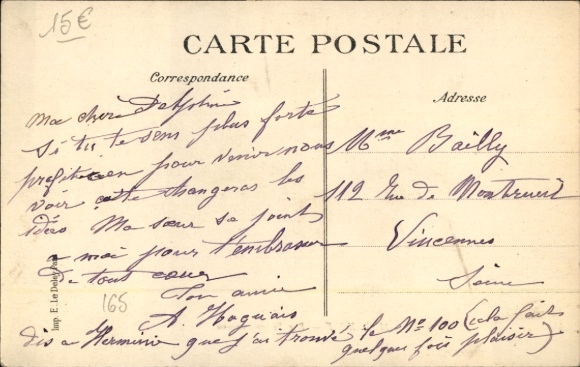 15€
CARTE POSTALE
Correspondance
Adresse
Ma chère Delphine
Si tu te sens plus forte
profites en pour venir nous
voir cela te changeras les
idées Ma sœur se joint
a moi pour t'embrasser
de tout cœur
Ton amie
A.
dis a Herminie que j'ai trouvé le No 100 (cela fait
quelques fois plaisir)
Mme Bailly
112 rue de Montreuil
Vincennes
Seine
165
Imp. E. Le Deley, Paris